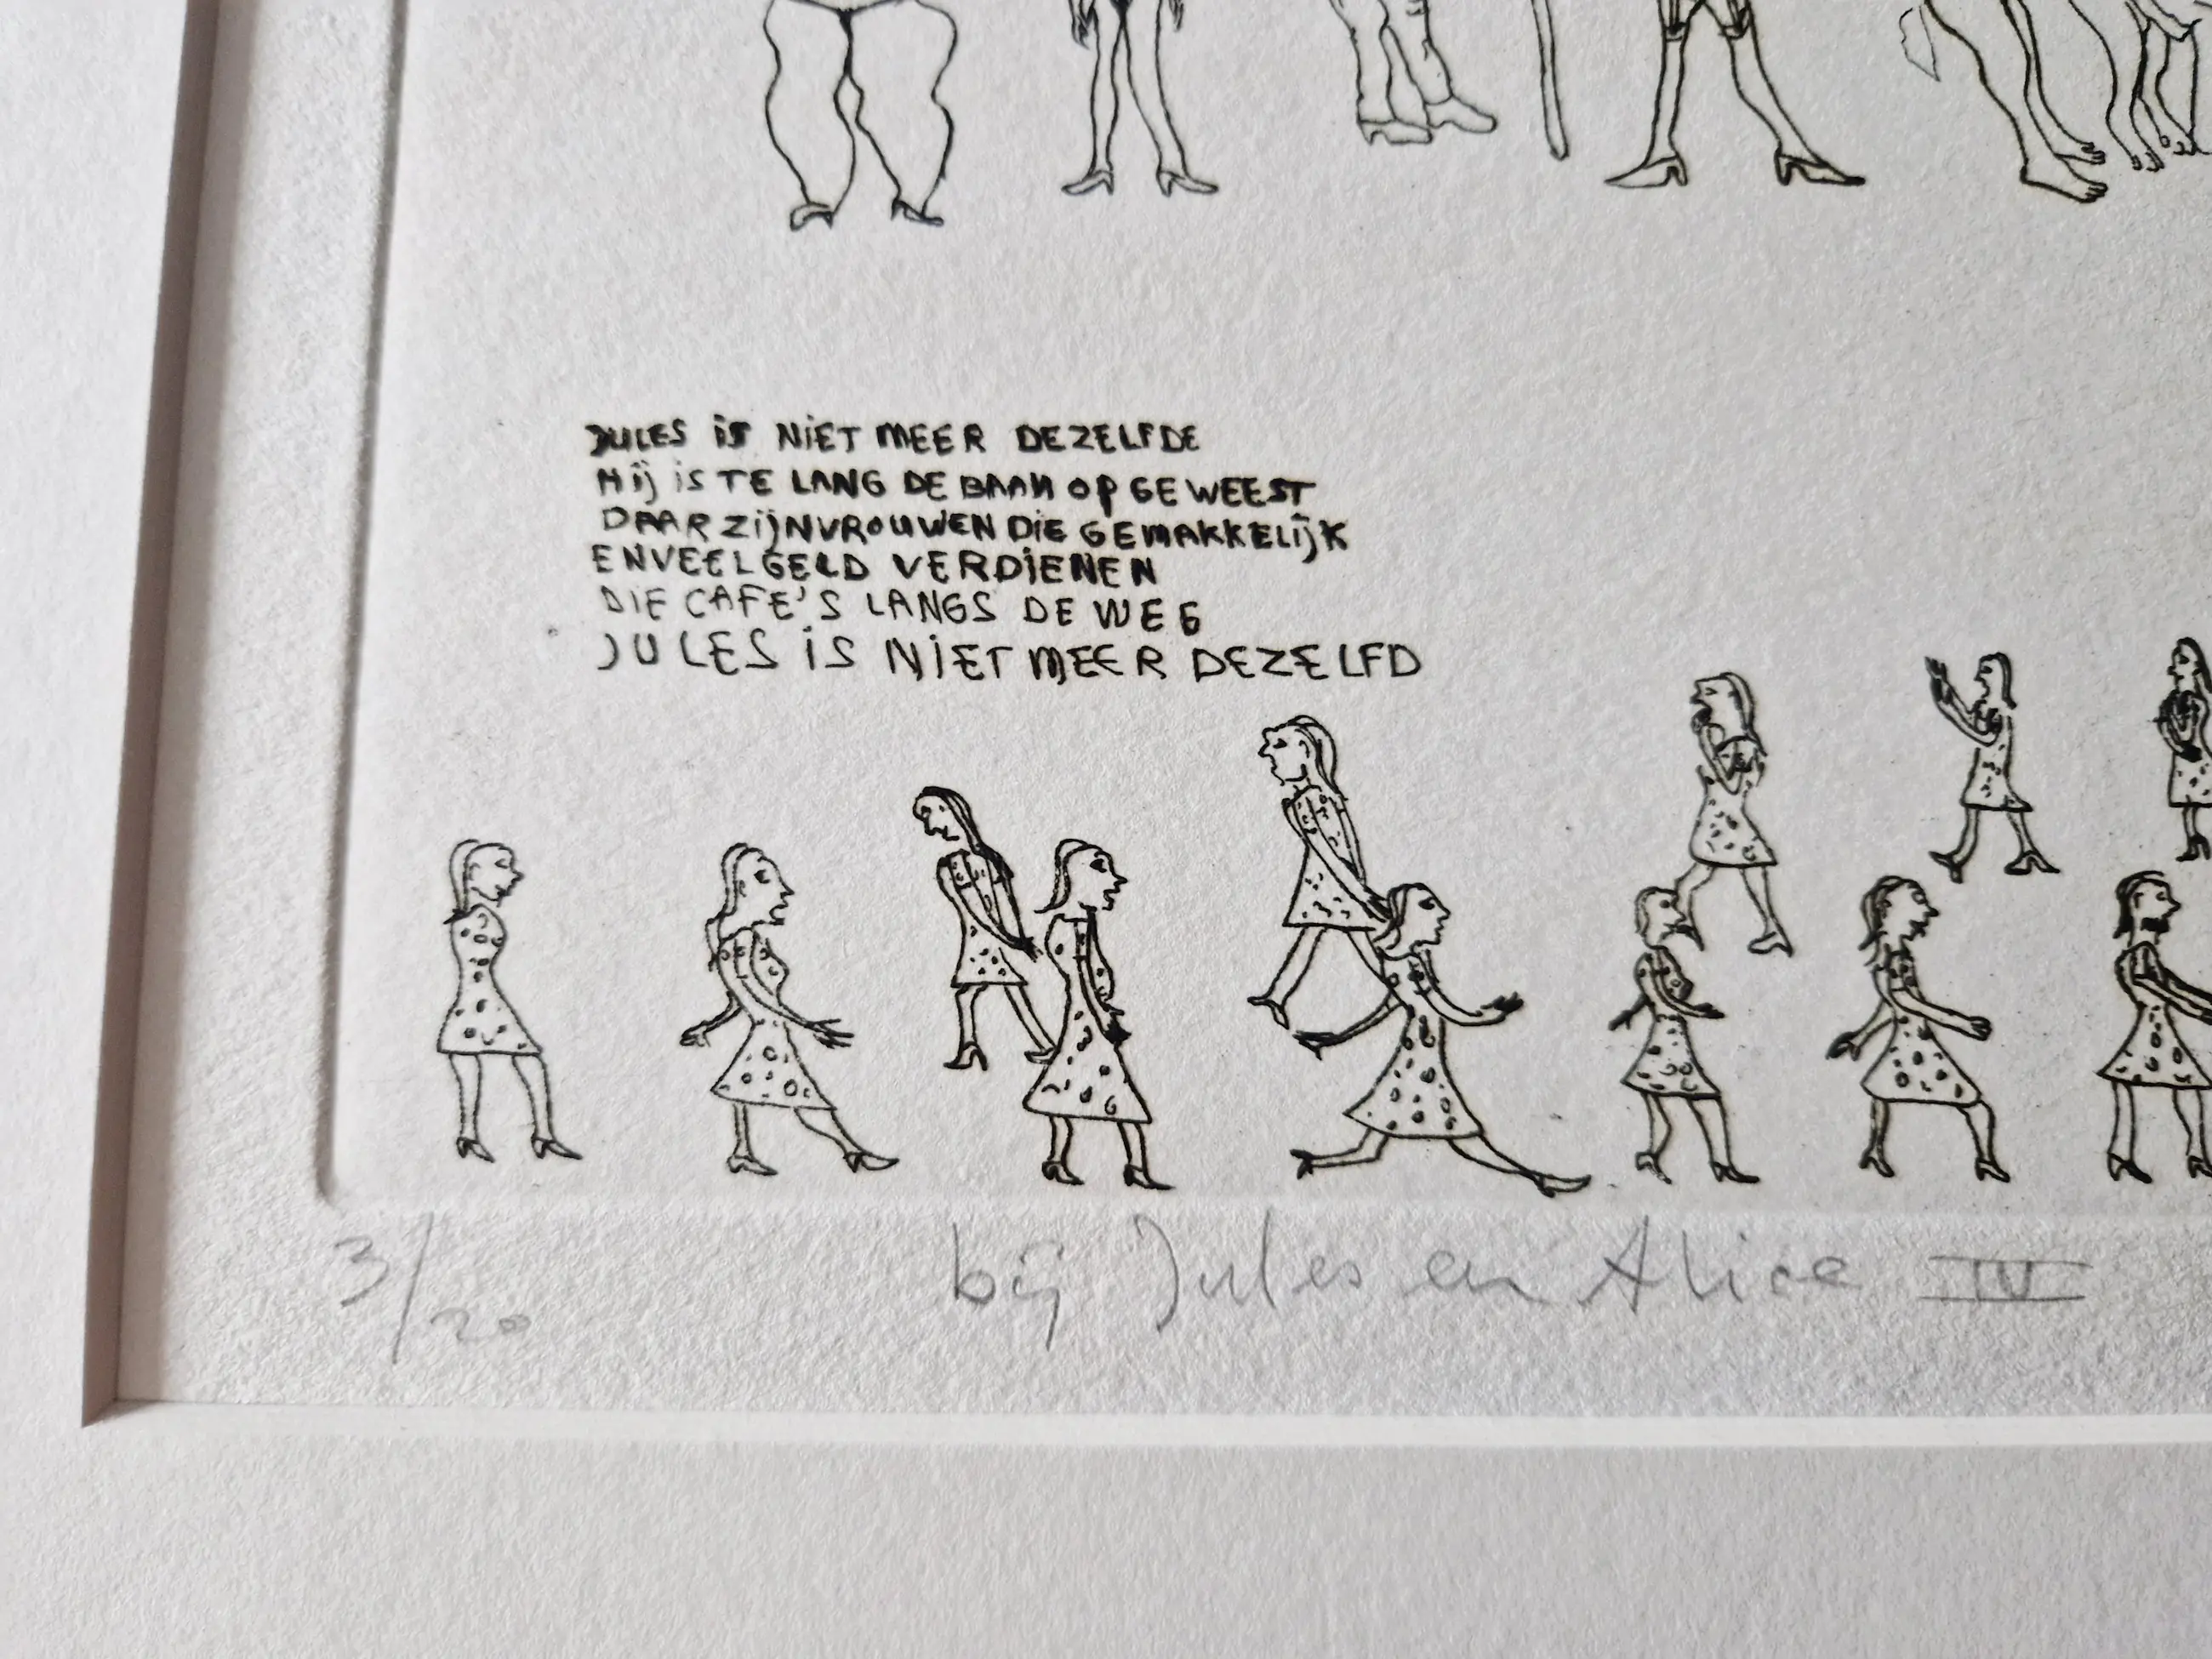 JULES iS NiET MEER DEZELFDE
Hij iS TE LANG DE BAAN OP GEWEEST
DAAR ZijN VROUWEN DiE GEMAKKELijK
EN VEEL GELD VERDiENEN
DIE CAFE'S LANGS DE WEG
JULES iS NiET MEER DEZELFD
3/20 bij Jules en Alice IV